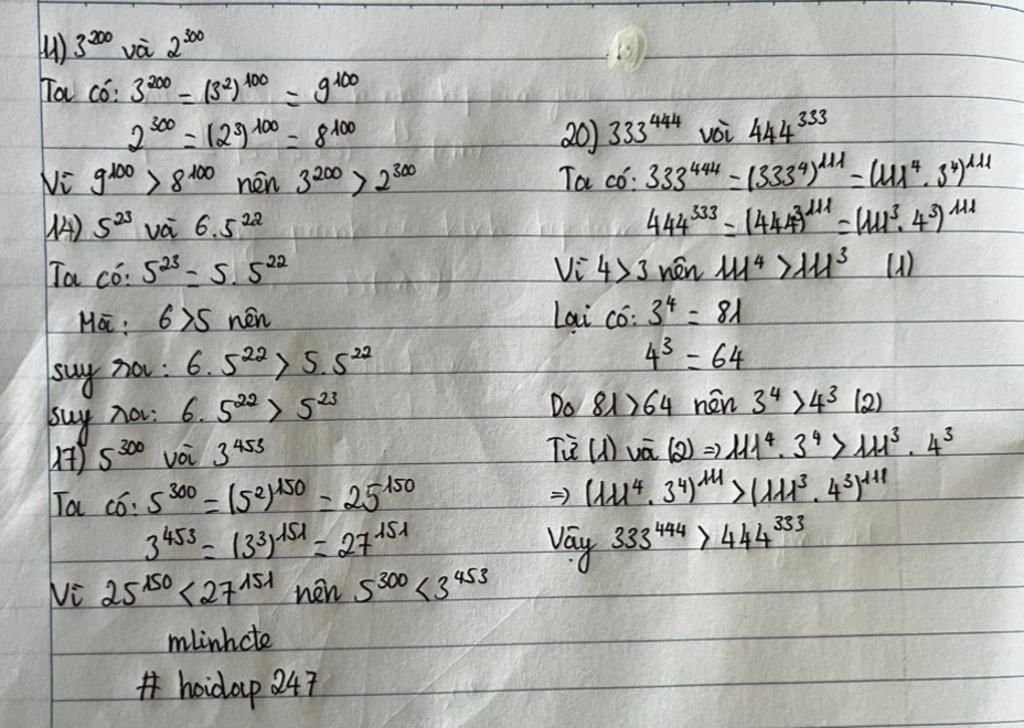 11) 3^200 và 2^300
Ta có: 3^200 = (3^2)^100 = 9^100
2^300 = (2^3)^100 = 8^100
Vì 9^100 > 8^100 nên 3^200 > 2^300
14) 5^23 và 6.5^22
Ta có: 5^23 = 5.5^22
Mà: 6>5 nên
suy ra: 6.5^22 > 5.5^22
suy ra: 6.5^22 > 5^23
17) 5^300 và 3^453
Ta có: 5^300 = (5^2)^150 = 25^150
3^453 = (3^3)^151 = 27^151
Vì 25^150 < 27^151 nên 5^300 < 3^453
mlinhcte
# hoidap 247
20) 333^444 với 444^333
Ta có: 333^444 = (333^4)^111 = (111^4.3^4)^111
444^333 = (444^3)^111 = (111^3.4^3)^111
Vì 4>3 nên 111^4 > 111^3 (1)
Lại có: 3^4 = 81
4^3 = 64
Do 81>64 nên 3^4 > 4^3 (2)
Từ (1) và (2) ⇒ 111^4.3^4 > 111^3.4^3
⇒ (111^4.3^4)^111 > (111^3.4^3)^111
Vậy 333^444 > 444^333